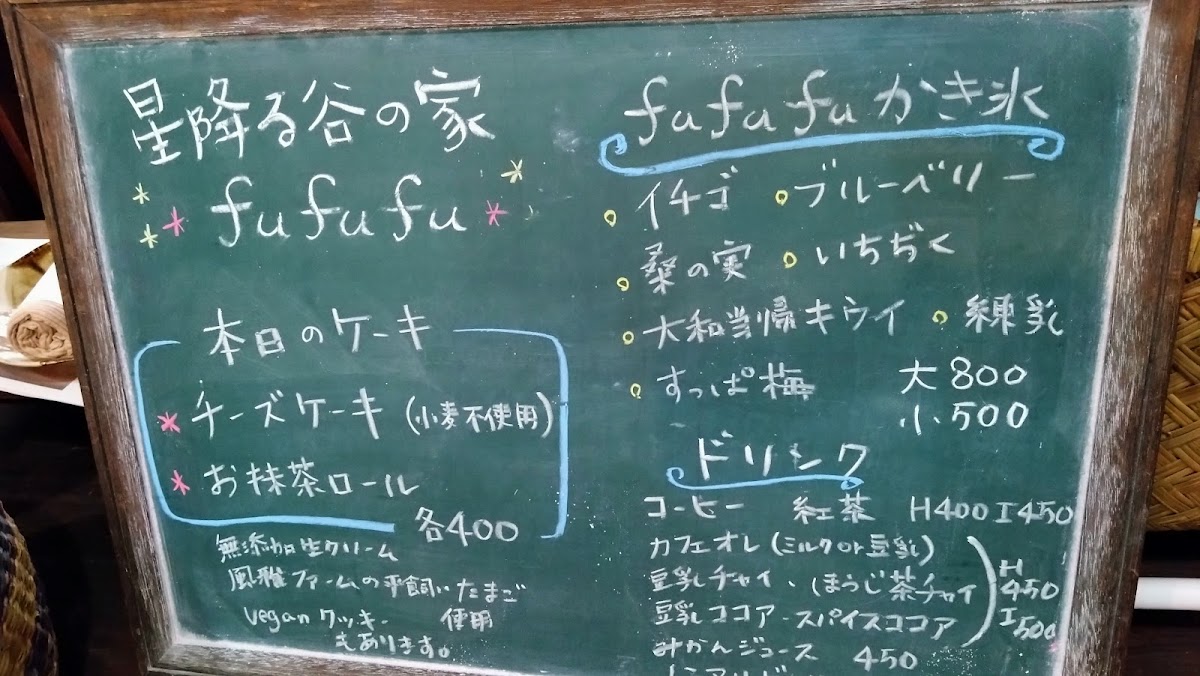 星降る谷の家
fufufu
本日のケーキ
チーズケーキ (小麦不使用)
お抹茶ロール
各400
無添加生クリーム
風雅ファームの平飼いたまご
使用
vegan クッキー
もあります。
fufufu かき氷
イチゴ ブルーベリー
桑の実 いちぢく
大和当帰キウイ 練乳
すっぱ梅 大800
小500
ドリンク
コーヒー 紅茶 H400 I450
カフェオレ (ミルクor豆乳)
豆乳チャイ・ほうじ茶チャイ
豆乳ココア・スパイスココア
H
450
I
500
みかんジュース 450